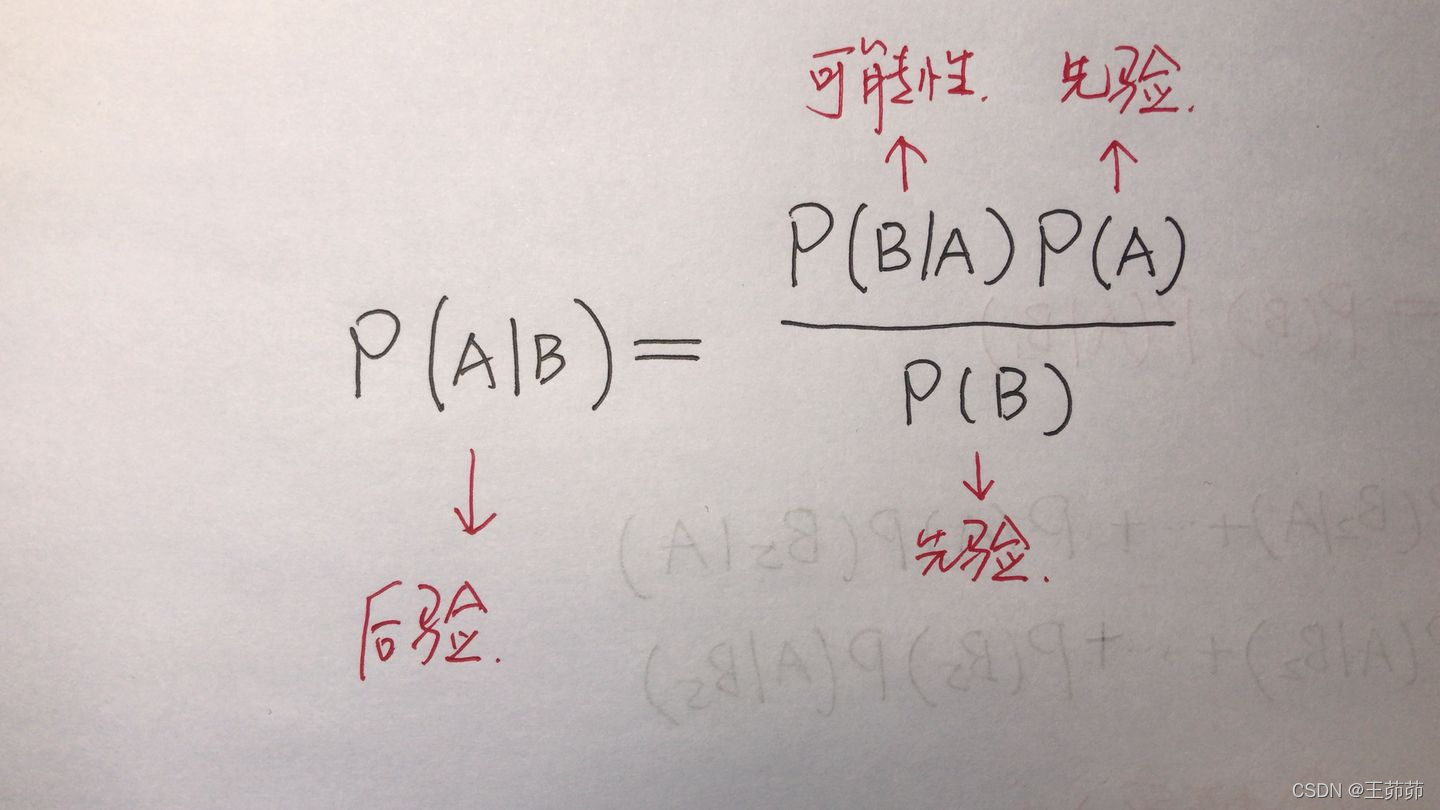 可能性. 先验.
P(B|A)P(A)
P(A|B)=
P(B)
先验.
后验.
CSDN @王茆茆